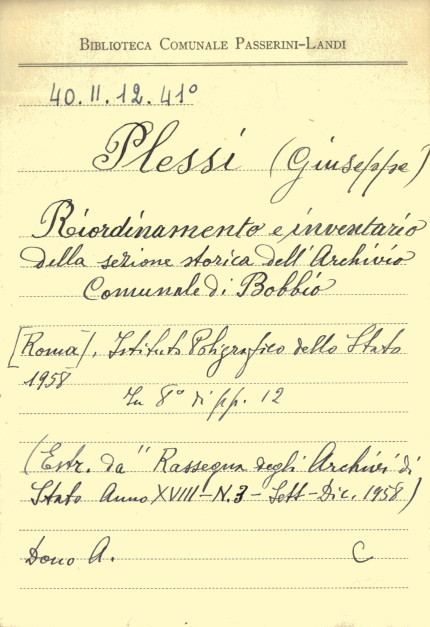 BIBLIOTECA COMUNALE PASSERINI-LANDI
40.II.12.41°
Plessi (Giuseppe)
Riordinamento e inventario
della sezione storica dell'Archivio
Comunale di Bobbio
[Roma], Istituto Poligrafico dello Stato
1958
In 8° di pp. 12
(Estr. da "Rassegna degli Archivi di
Stato Anno XVIII-N.3-Sett-Dic. 1958)
Dono A. C